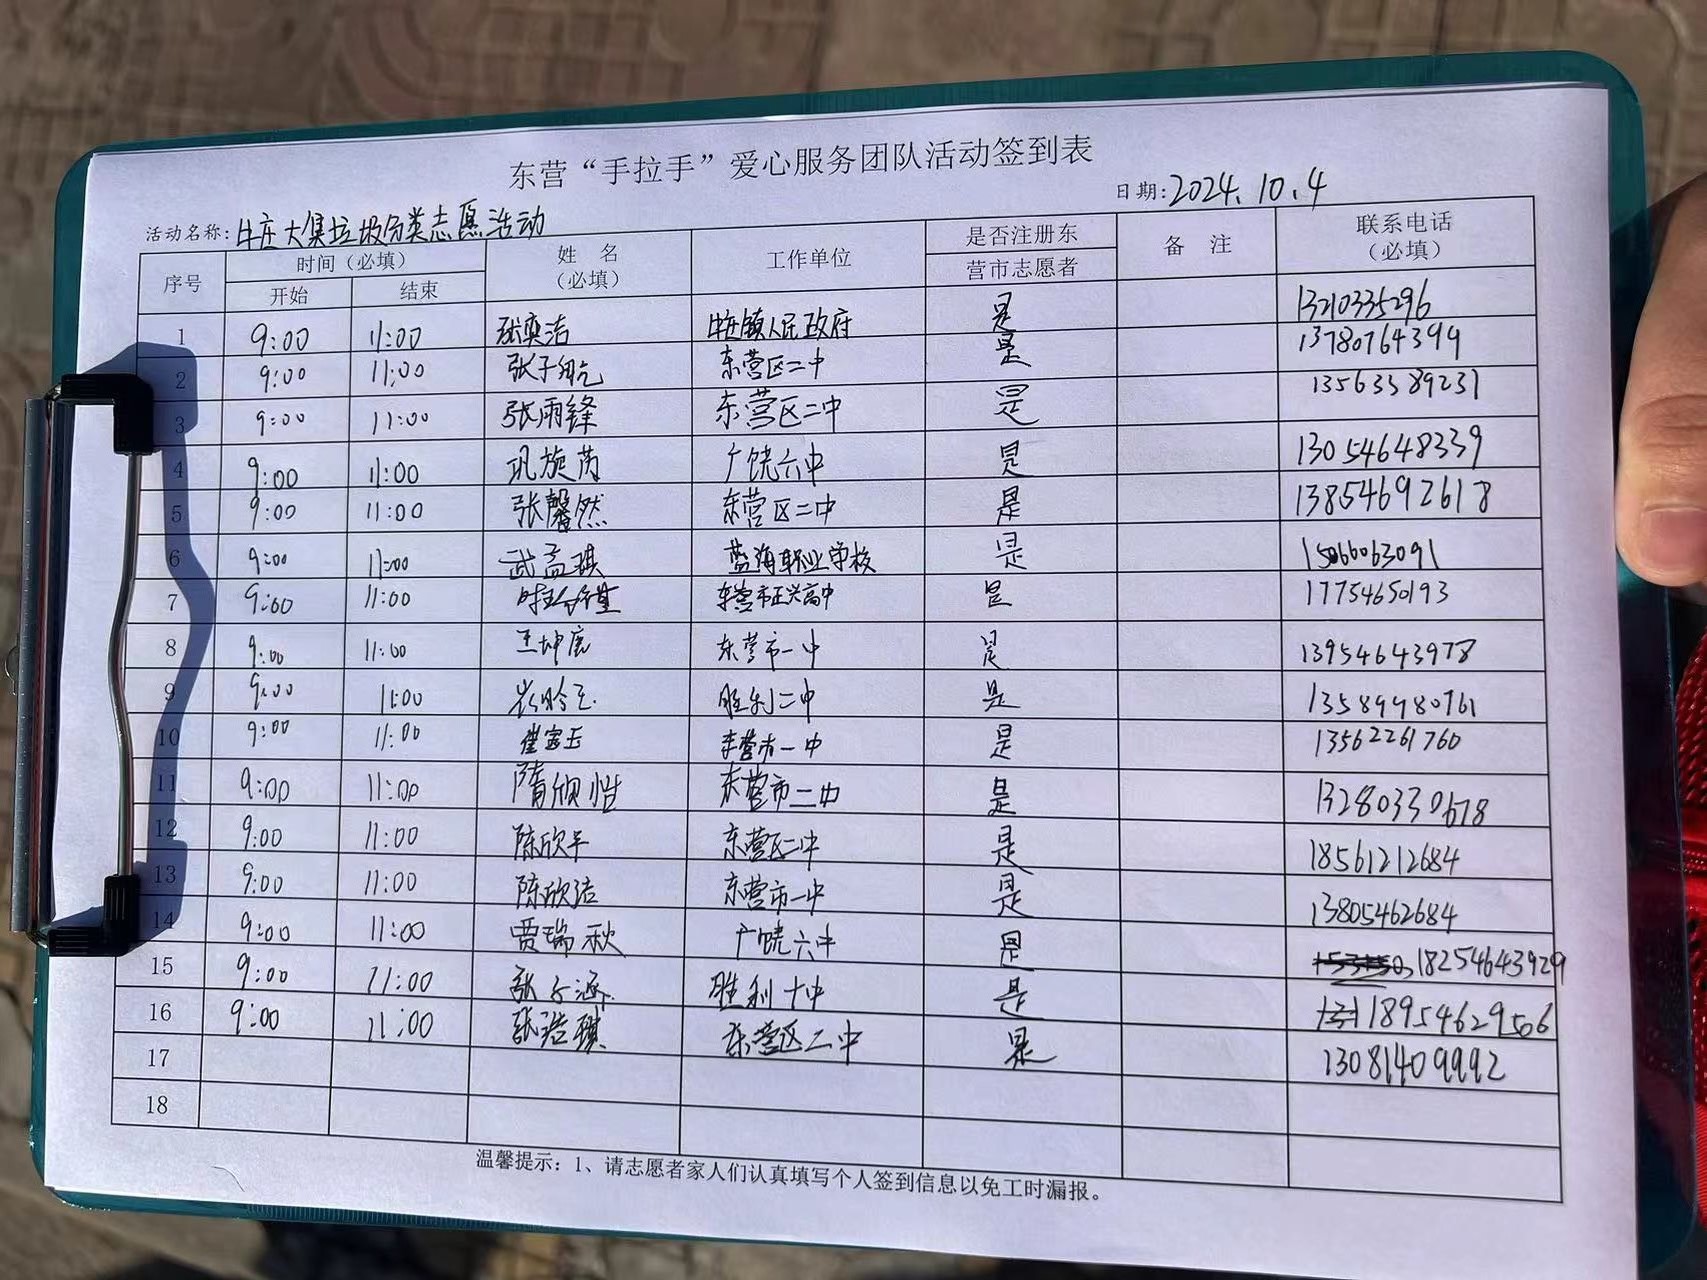 东营“手拉手”爱心服务团队活动签到表
活动名称: 牛庄大集垃圾分类志愿活动 日期: 2024.10.4
序号 时间（必填） 开始 结束 姓 名（必填） 工作单位 是否注册东营市志愿者 备 注 联系电话（必填）
1 9:00 11:00 张奕洁 牛庄镇人民政府 是 13210335296
2 9:00 11:00 张子翔 东营区二中 是 13780764394
3 9:00 11:00 张雨锋 东营区二中 是 13563389231
4 9:00 11:00 巩旋芮 广饶六中 是 13054648339
5 9:00 11:00 张馨然 东营区二中 是 13854692618
6 9:00 11:00 武孟琪 蓝海职业学校 是 15066063091
7 9:00 11:00 东营市正兴高中 是 17754650193
8 9:00 11:00 王坤 东营市一中 是 13954643978
9 9:00 11:00 胜利二中 是 13589980761
10 9:00 11:00 崔富玉 东营市一中 是 13562261760
11 9:00 11:00 隋欣怡 东营市二中 是 13280330678
12 9:00 11:00 陈欣羊 东营区二中 是 18561212684
13 9:00 11:00 陈欣洁 东营市一中 是 13805462684
14 9:00 11:00 贾瑞秋 广饶六中 是 18254643929
15 9:00 11:00 张子涵 胜利十中 是 18954629506
16 9:00 11:00 张浩琪 东营区二中 是 13081409992
17
18
温馨提示：1、请志愿者家人们认真填写个人签到信息以免工时漏报。